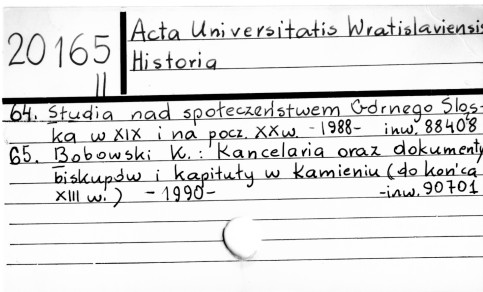 20165
II
Acta Universitatis Wratislaviensis
Historia
64. Studia nad społeczeństwem Górnego Śląs-
ka w XIX i na pocz. XX w. -1988- inw. 88408
65. Bobowski K.: Kancelaria oraz dokumenty
biskupów i kapituły w Kamieniu (do końca
XIII w.) -1990- -inw. 90701